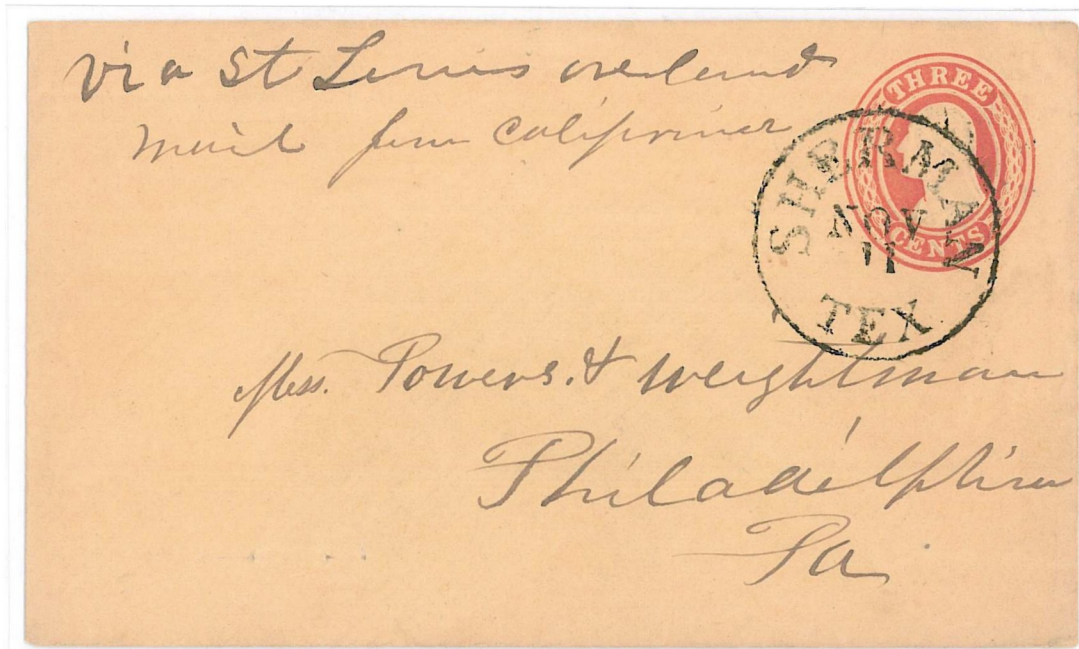 via St Louis overland
mail from California
THREE
CENTS
SHERMAN
NOV
11
TEX
Mess. Powers & Weightman
Philadelphia
Pa